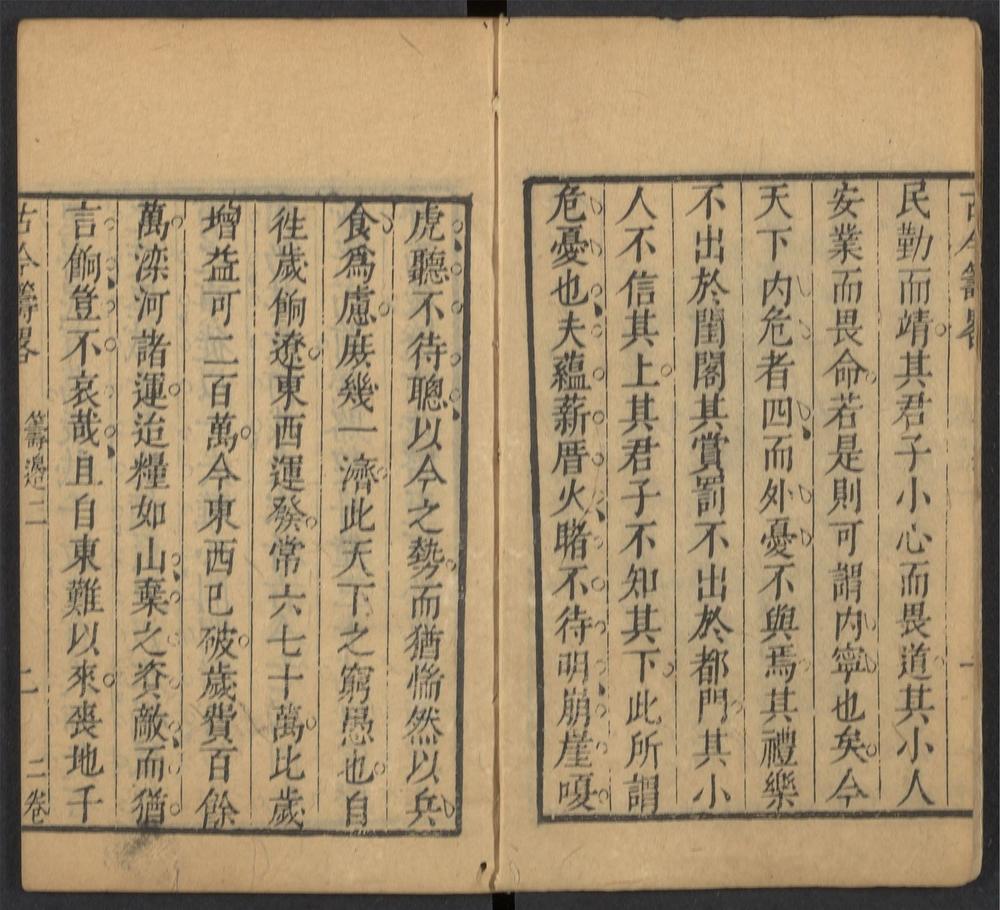 古今籌畧
民勤而靖其君子小心而畏道其小人
安業而畏命若是則可謂内寧也矣今
天下内危者四而外憂不與焉其禮樂
不出於閨閣其賞罰不出於都門其小
人不信其上其君子不知其下此所謂
危憂也夫蘊薪厝火睹不待明崩崖嗄
虎聽不待聰以今之勢而猶惴然以兵
食爲慮庻幾一濟此天下之窮愚也自
徃歲餉遼東西運發常六七十萬比歲
增益可二百萬今東西已破歲費百餘
萬滦河諸運迨糧如山棄之資敵而猶
言餉豈不哀哉且自東難以來喪地千
古今籌畧
籌邊二
二
二卷